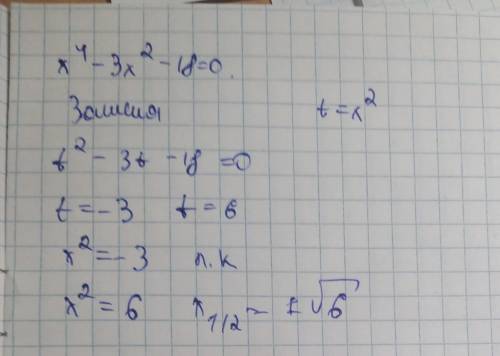 x⁴ - 3x² - 18 = 0.
Замена t = x²
t² - 3t - 18 = 0
t = -3 t = 6
x² = -3 п.к
x² = 6 x₁/₂ = ±√6